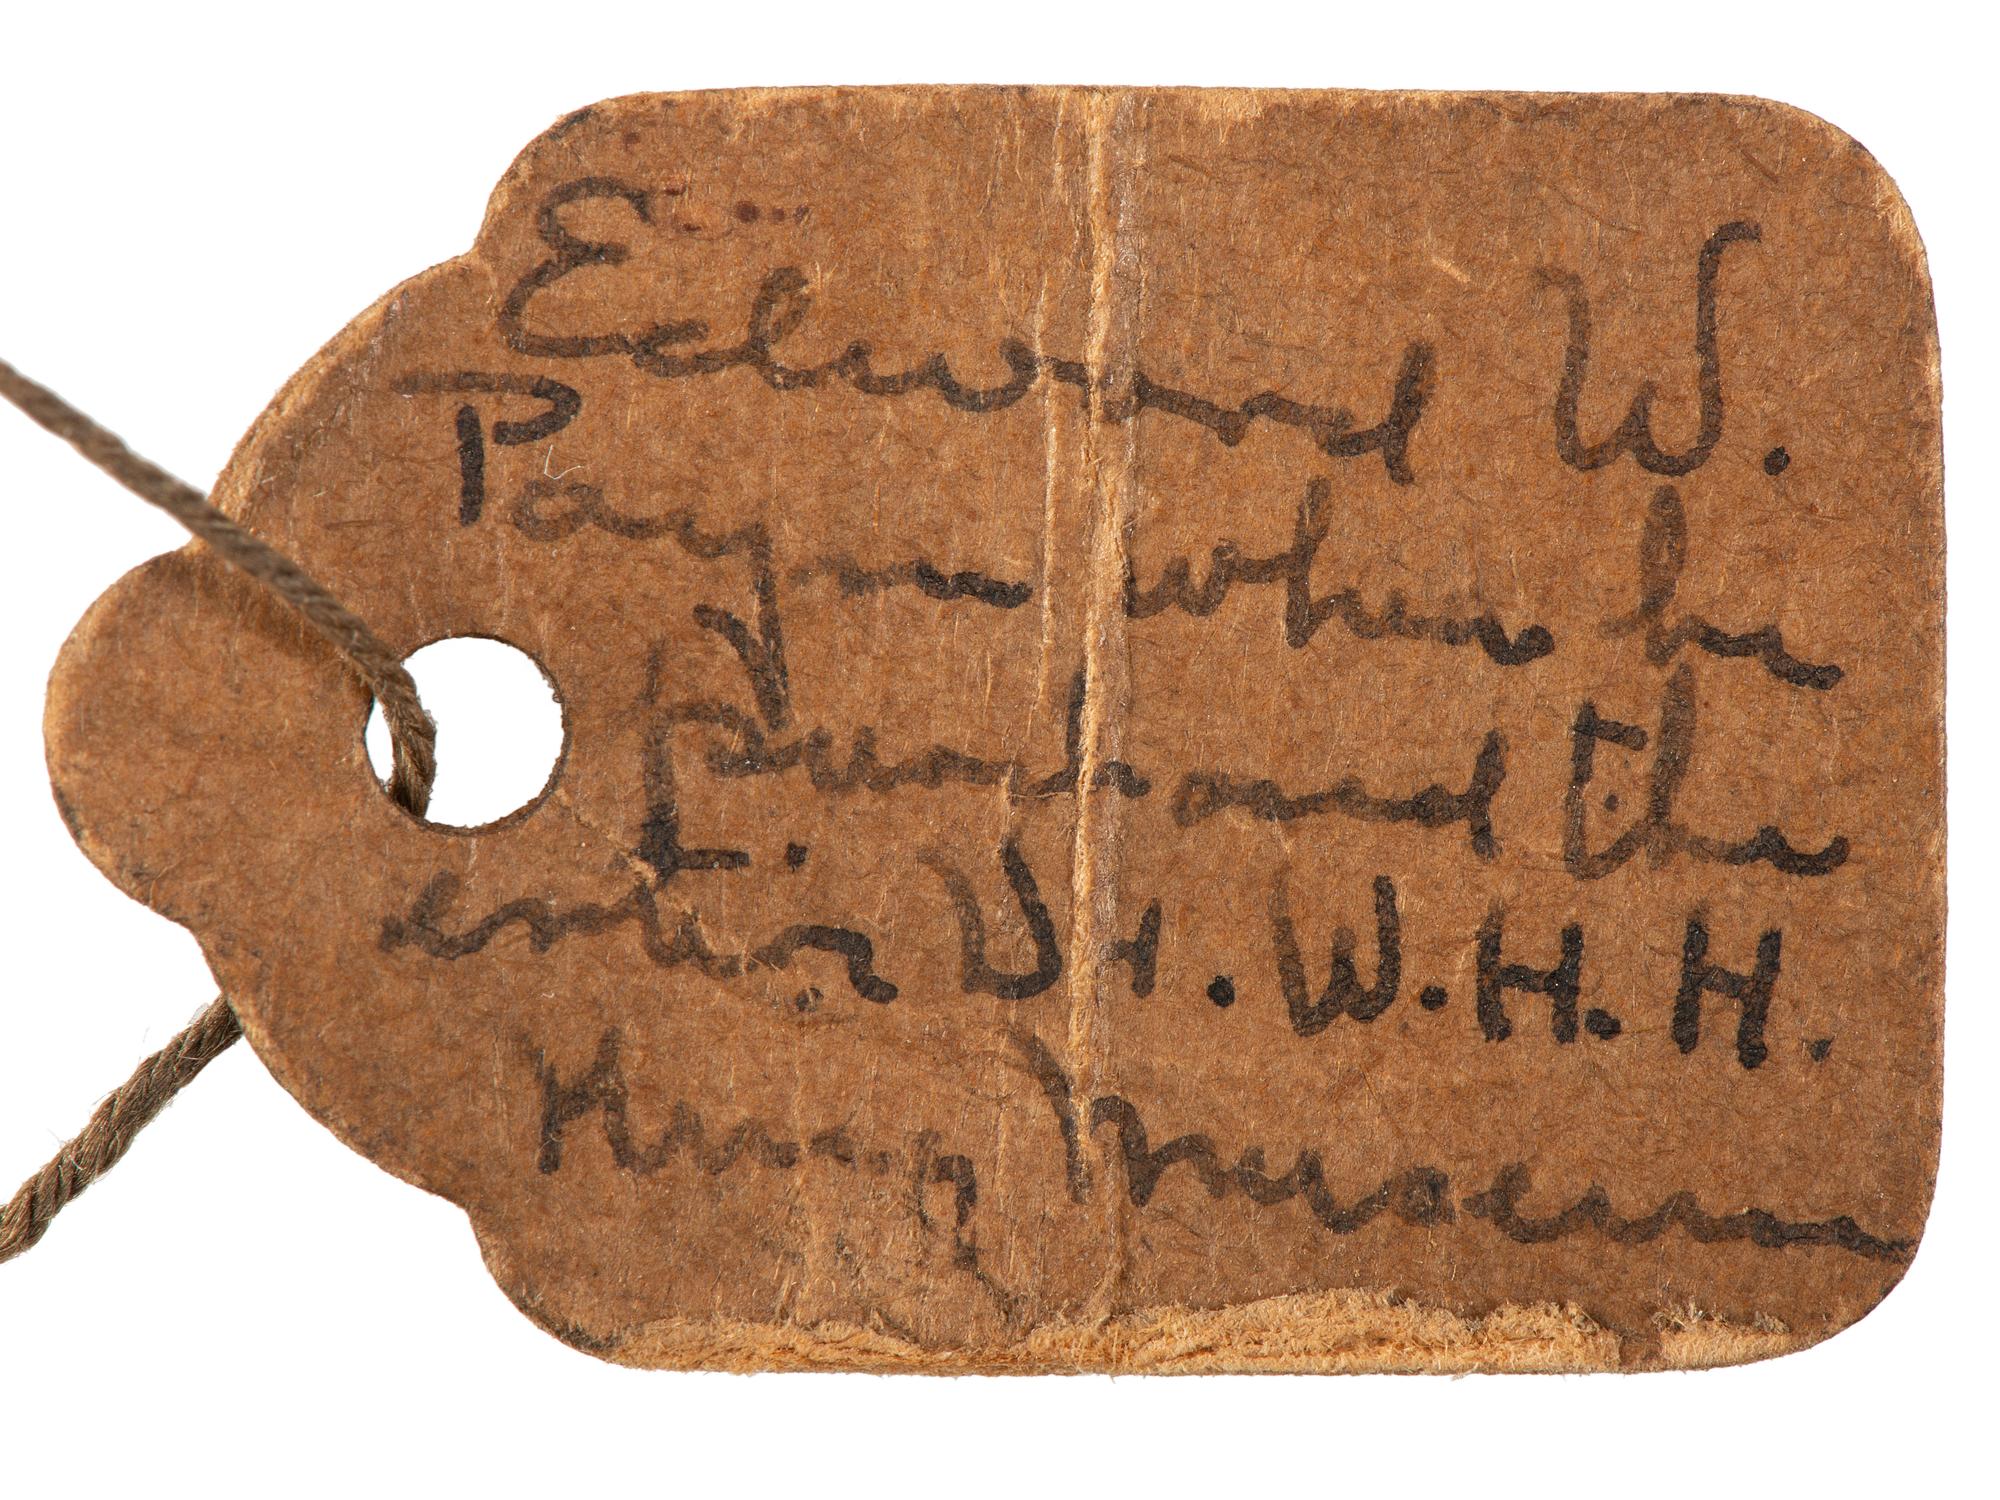 Edward W.
Payn when he
purchased the
entire Dr. W.H.H.
Murray Museum